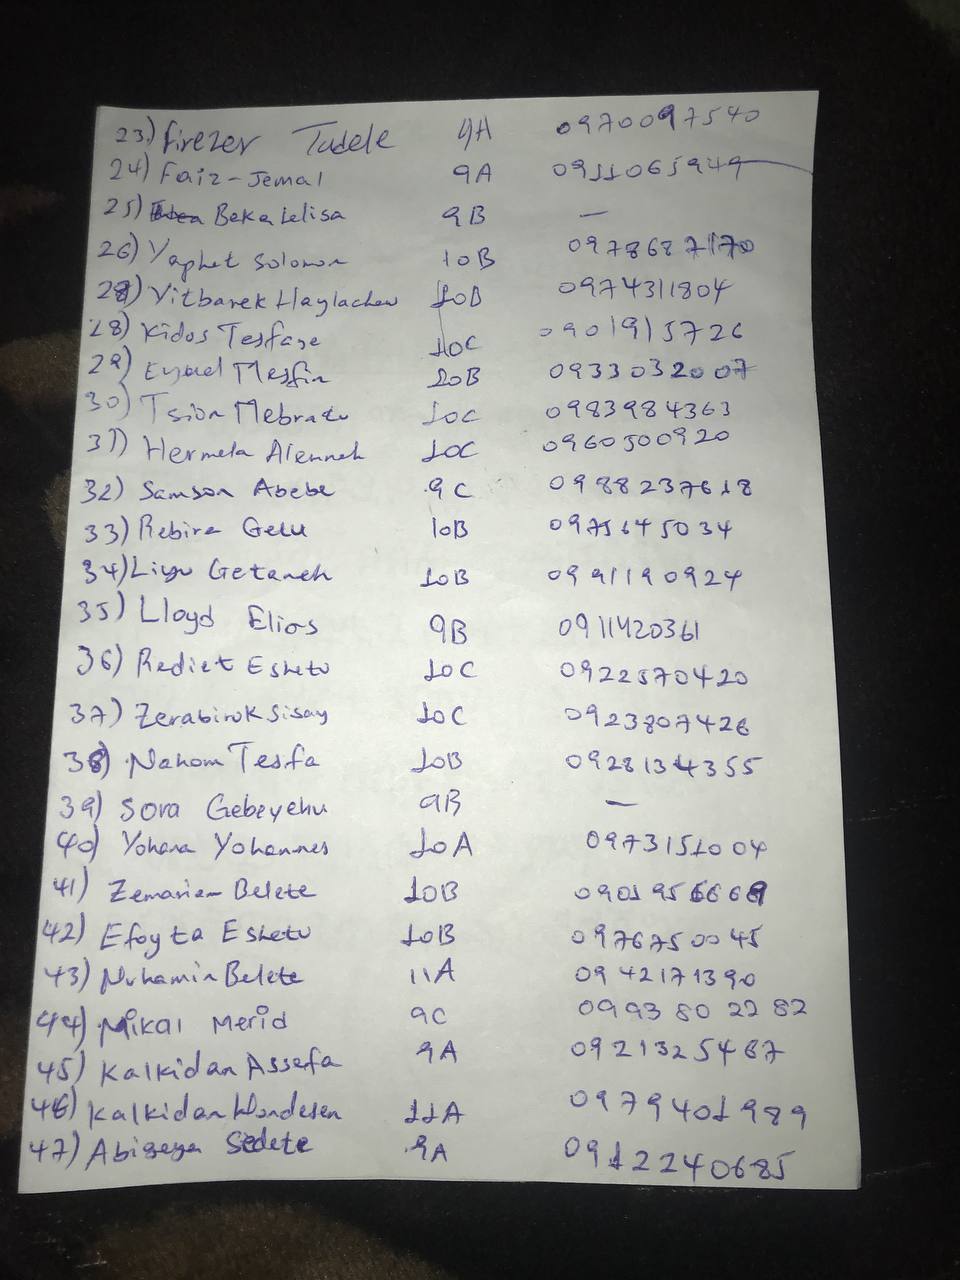 23) Firezer Tadele 9A 0970097540
24) Faiz-Jemal 9A 0911065949
25) Beka Lelisa 9B —
26) Yaphet Solomon 10B 0978687170
28) Yitbarek Haylachew 10B 0974311804
28) Kidos Tesfaye 10C 0901915726
29) Eyouel Mesfin 10B 0933032007
30) Tsion Mebratu 10C 0983984363
31) Hermela Alemneh 10C 0960500920
32) Samson Abebe 9C 0988237618
33) Rebira Gelu 10B 0975645034
34) Liyu Getaneh 10B 0991190924
35) Lloyd Elias 9B 0911420361
36) Rediet Eshetu 10C 0922570420
37) Zerabirok Sisay 10C 0923807426
38) Nahom Tesfa 10B 0928134355
39) Sora Gebeyehu 9B —
40) Yohana Yohannes 10A 0973151004
41) Zemariam Belete 10B 0901956669
42) Efoyta Eshetu 10B 0976750045
43) Nuhamin Belete 11A 0942171390
44) Mikal Merid 9C 0993 80 22 82
45) Kalkidan Assefa 9A 0921325487
46) Kalkidan Wondesen 11A 0979401989
47) Abigeya Sedete 9A 0912240685